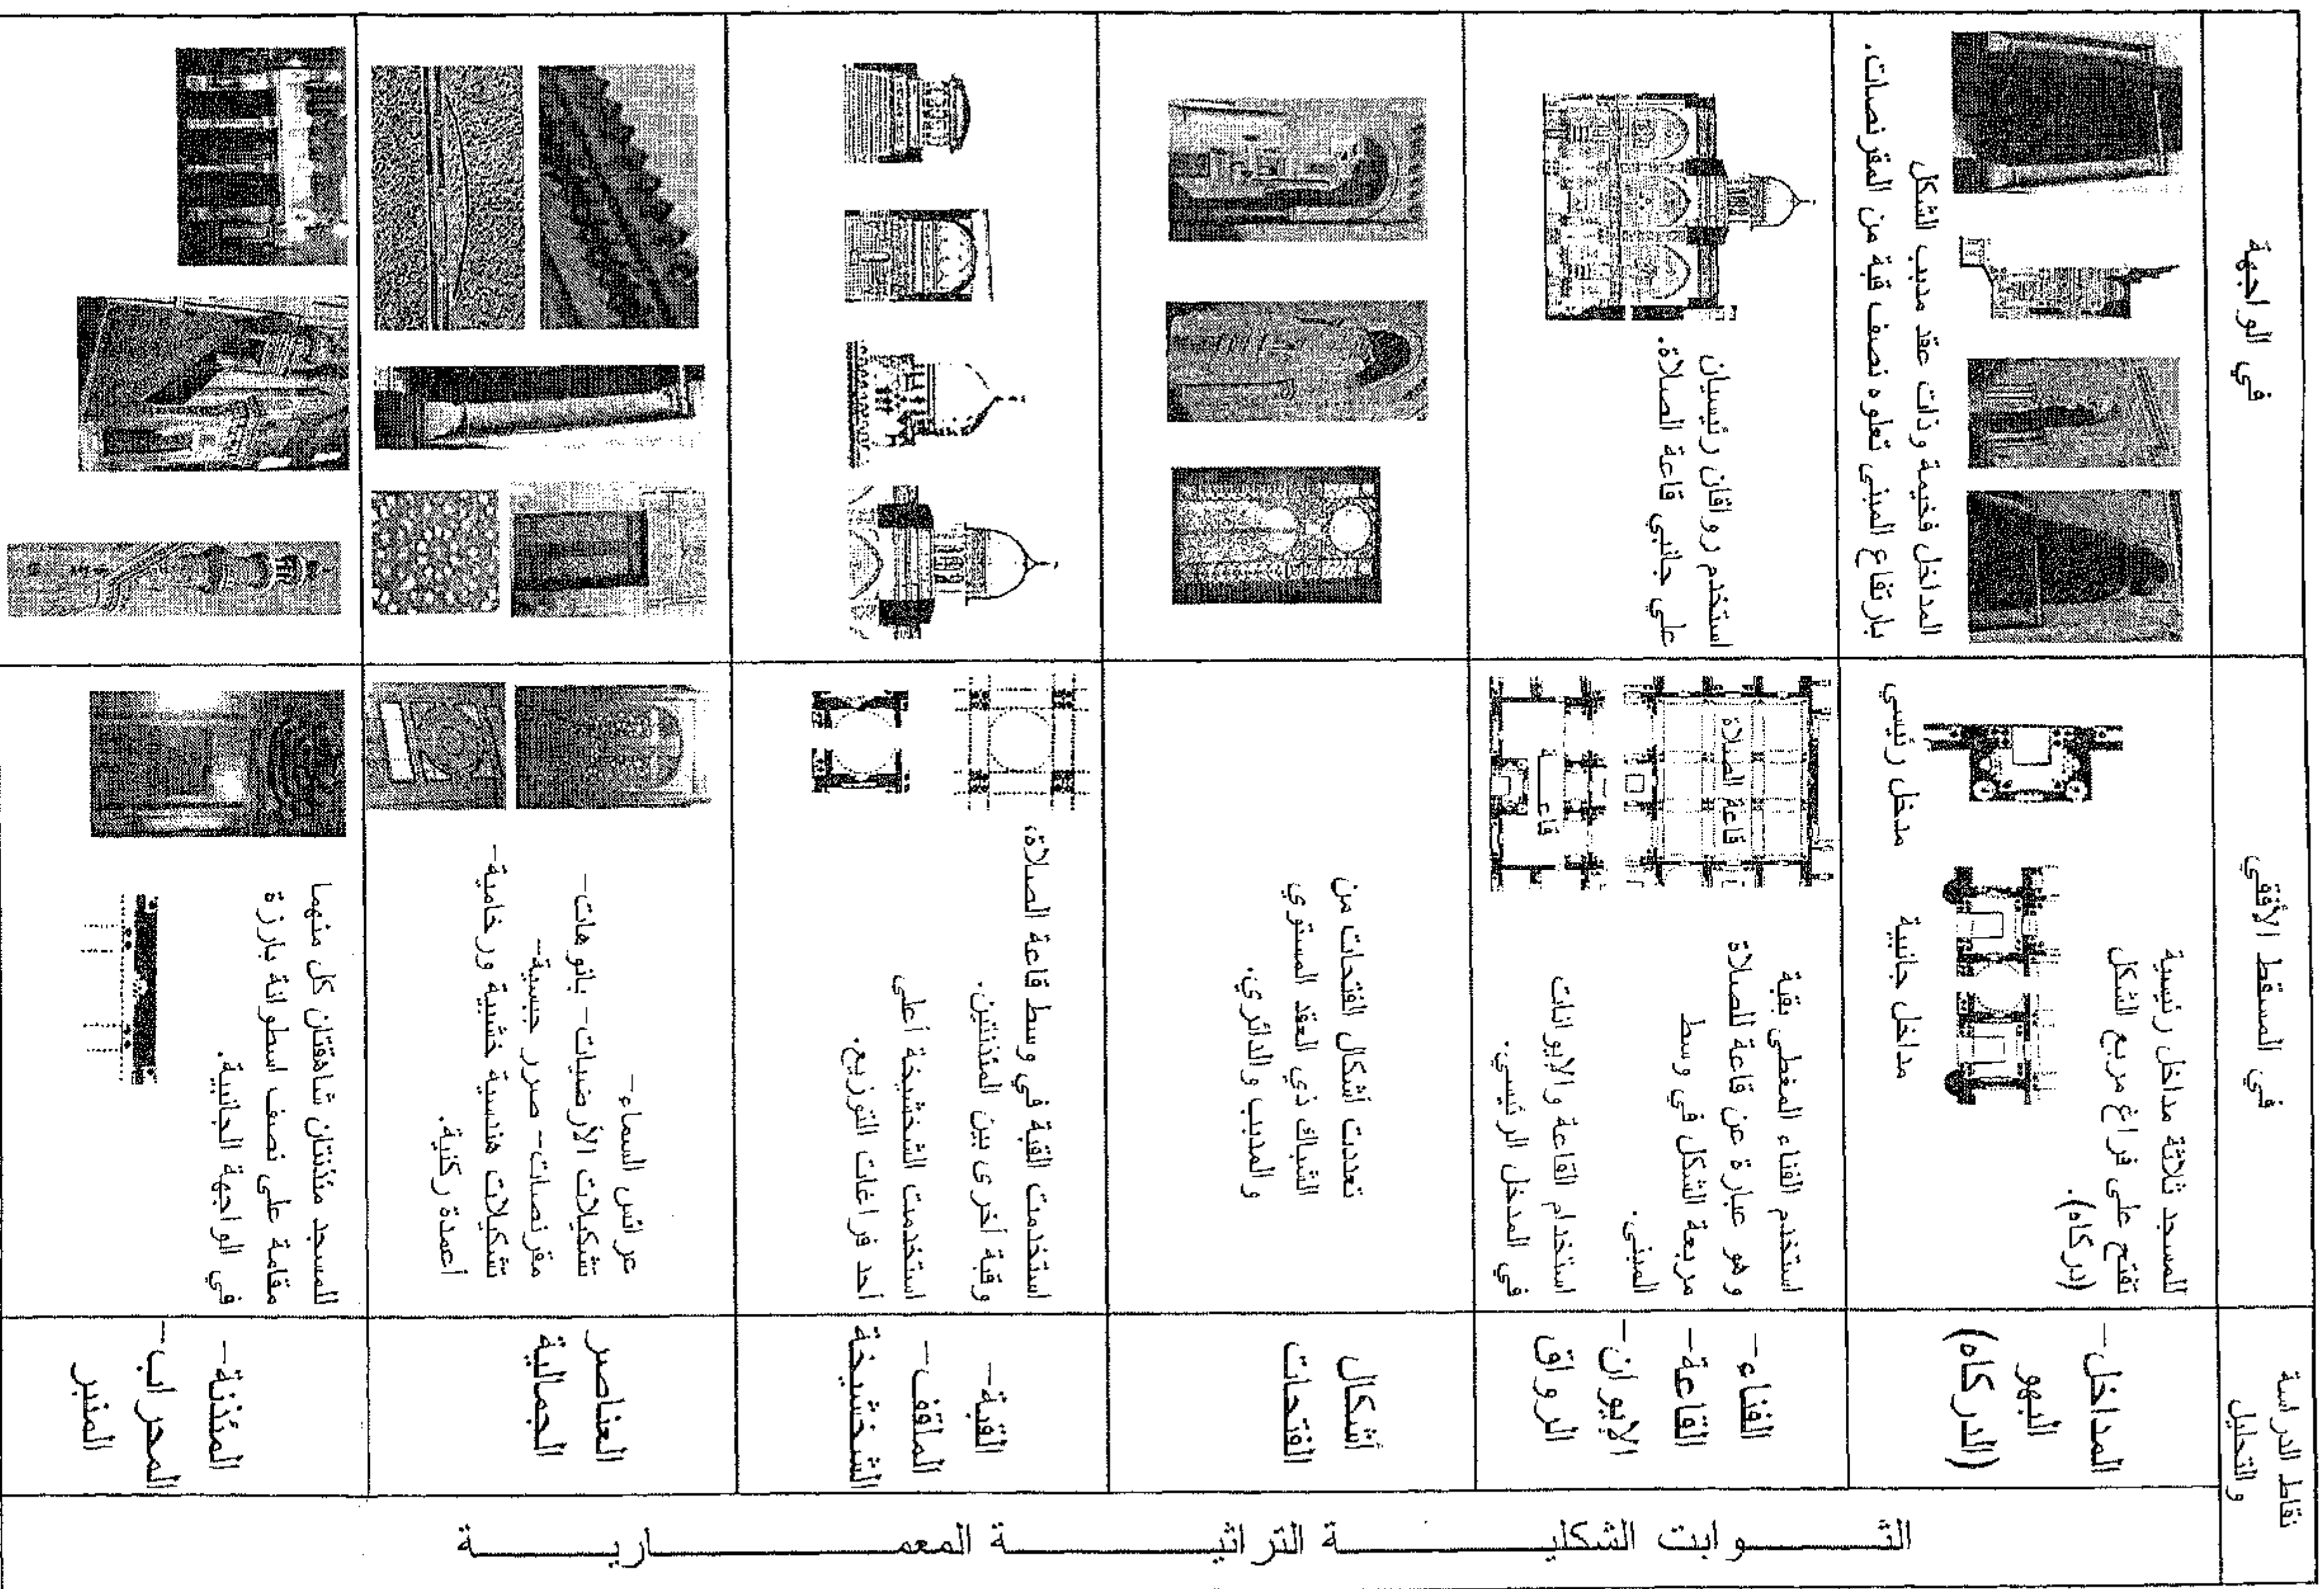 نقاط الدراسة
والتحليل
في المسقط الأفقي
في الواجهة
الثـــــوابت الشكليـــــة التراثيـــــة المعمـــــاريـــــة
المداخل-
البهو
(الدركاه)
للمسجد ثلاثة مداخل رئيسية
تفتح على فراغ مربع الشكل
(دركاه).
مدخل رئيسي
مداخل جانبية
المداخل فخيمة وذات عقد مدبب الشكل
بارتفاع المبنى تعلوه نصف قبة من المقرنصات.
الفناء-
القاعة-
الإيوان-
الرواق
استخدم الفناء المغطى بقبة
وهو عبارة عن قاعة للصلاة
مربعة الشكل في وسط
المبنى.
استخدام القاعة والإيوانات
في المدخل الرئيسي.
قاعة الصلاة
قاعة
استخدم رواقان رئيسيان
على جانبي قاعة الصلاة.
أشكال
الفتحات
تعددت أشكال الفتحات من
الشباك ذي العقد المستوي
والمدبب والدائري.
القبة-
الملقف-
الشخشيخة
استخدمت القبة في وسط قاعة الصلاة،
وقبة أخرى بين المئذنتين.
استخدمت الشخشيخة أعلى
أحد فراغات التوزيع.
العناصر
الجمالية
عرائس السماء-
تشكيلات الأرضيات- بانوهات-
مقرنصات- صرر جبسية-
تشكيلات هندسية خشبية ورخامية-
أعمدة ركنية.
المئذنة-
المحراب-
المنبر
للمسجد مئذنتان شاهقتان كل منهما
مقامة على نصف اسطوانة بارزة
في الواجهة الجانبية.